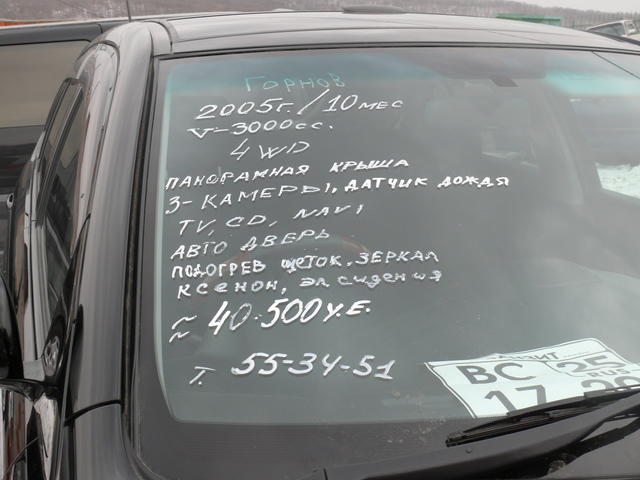 ГОРНОВ
2005г. / 10 мес
V-3000сс.
4 WD
ПАНОРАМНАЯ КРЫША
3-КАМЕРЫ, ДАТЧИК ДОЖДЯ
TV, CD, NAVI
АВТО ДВЕРЬ
ПОДОГРЕВ ЩЕТОК, ЗЕРКАЛ
КСЕНОН, ЭЛ СИДЕНИЯ
≈ 40.500 У.Е.
Т. 55-34-51
ТРАНЗИТ
ВС 25
RUS
17